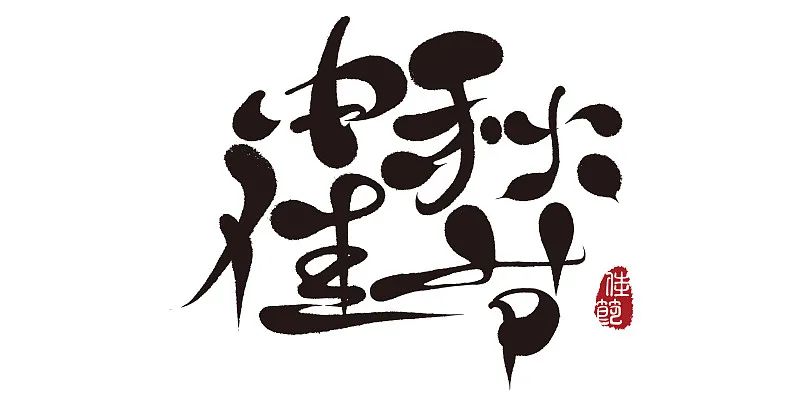 中秋
佳节
佳節